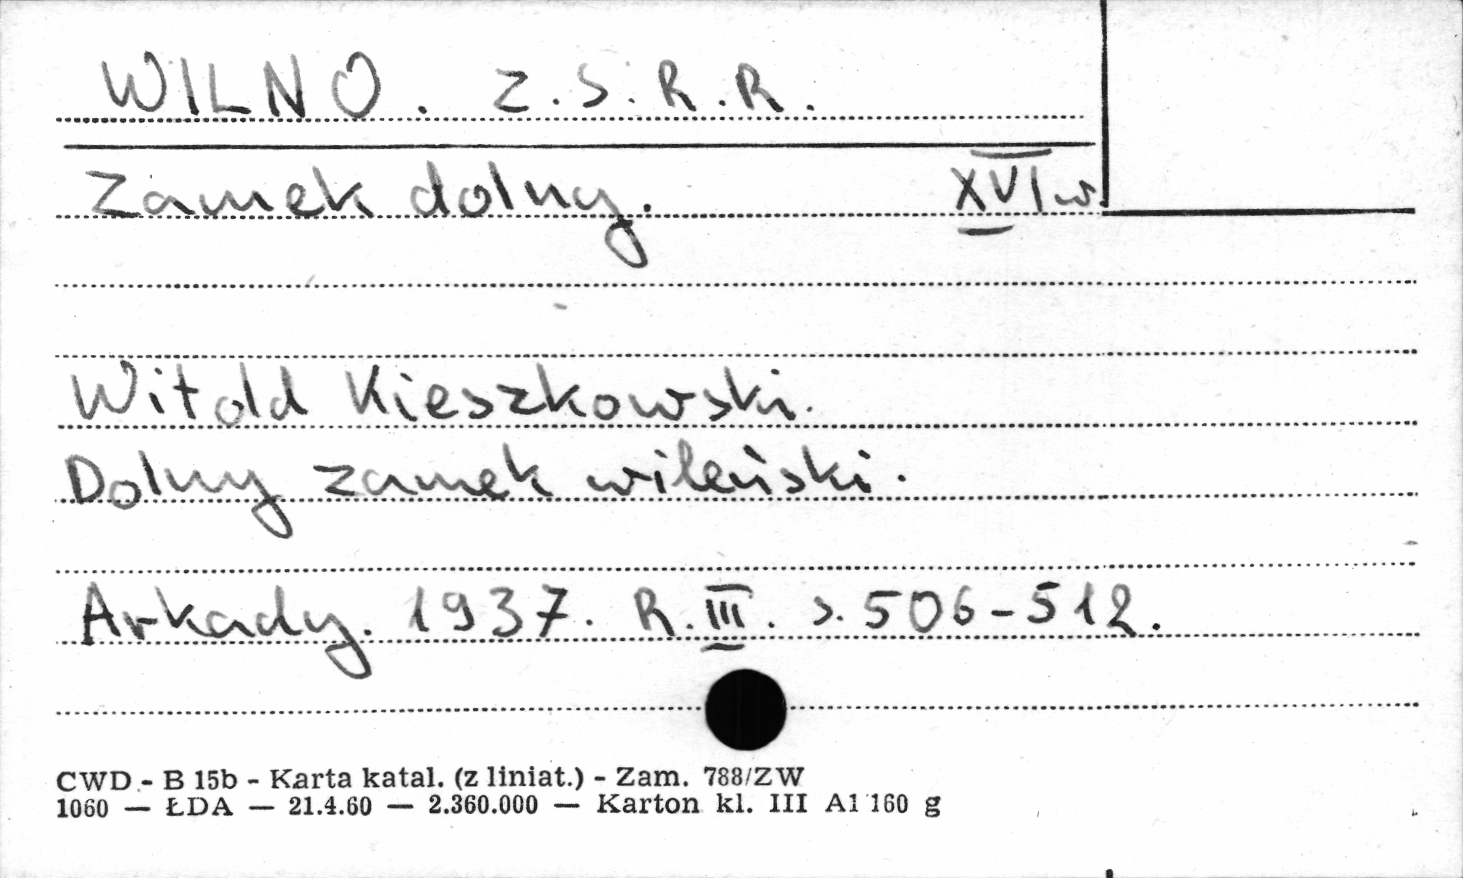 WILNO. Z.S.R.R.
Zamek dolny. XVI w.
Witold Kieszkowski.
Dolny zamek wileński.
Arkady. 1937. R. III. s. 506-512.
CWD - B 15b - Karta katal. (z liniat.) - Zam. 788/ZW
1060 — ŁDA — 21.4.60 — 2.360.000 — Karton kl. III A1 160 g